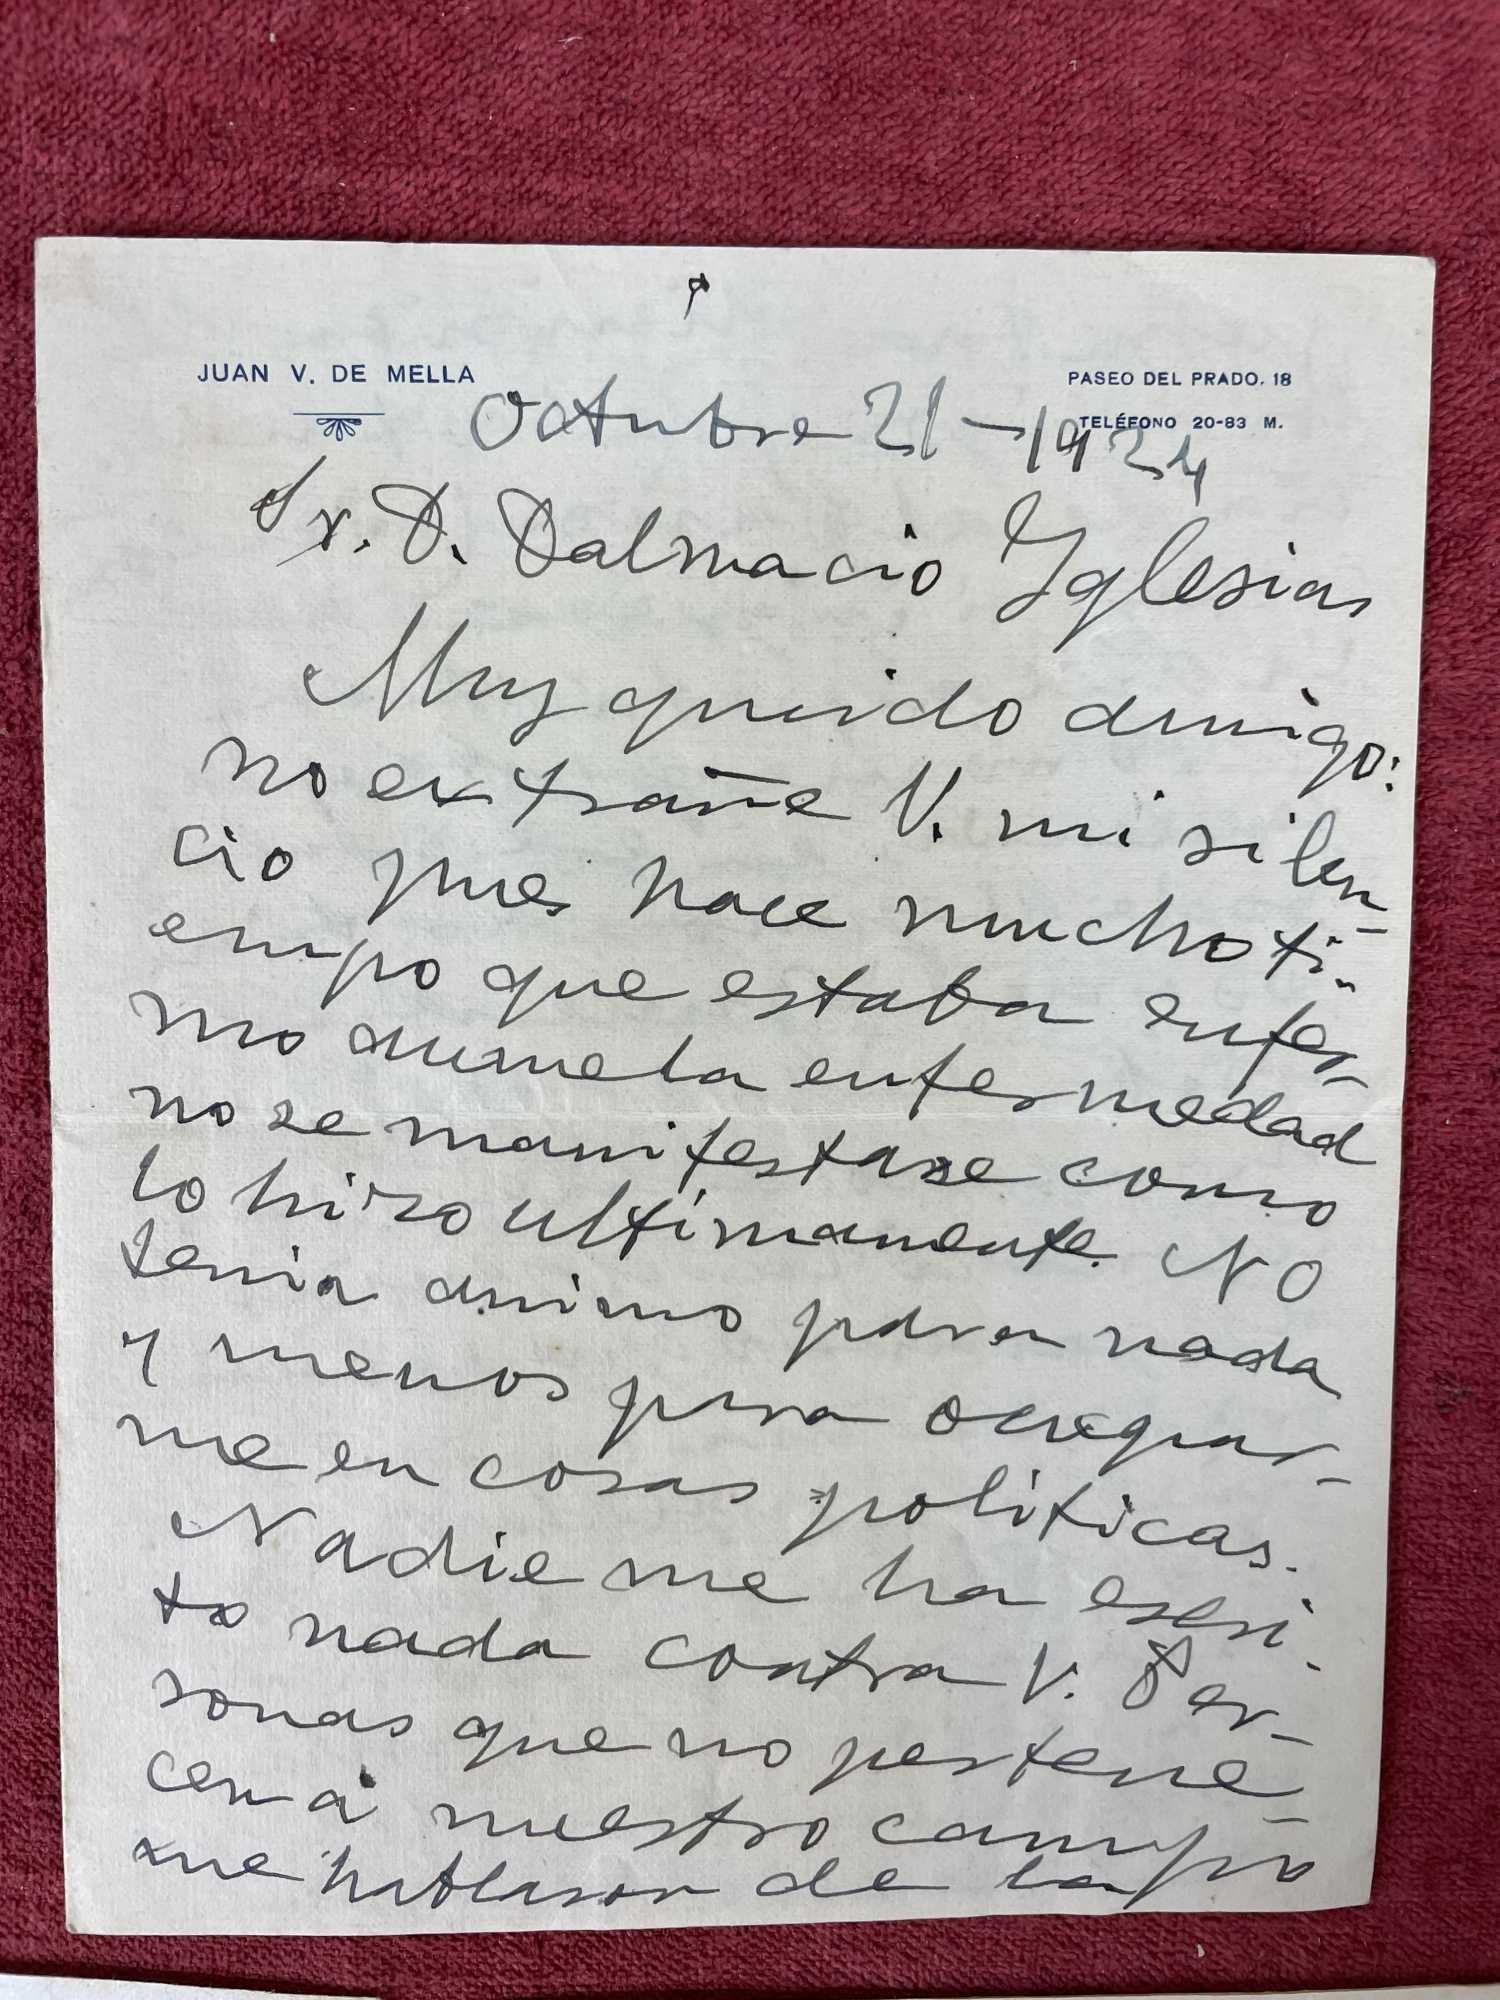 JUAN V. DE MELLA
PASEO DEL PRADO, 18
TELÉFONO 20-83 M.
Octubre 21-1924
Sr. D. Dalmacio Yglesias
Muy querido amigo:
no extrañe V. mi silen-
cio pues hace mucho ti-
empo que estaba enfer-
mo aunque la enfermedad
no se manifestase como
lo hizo ultimamente. No
tenia animo para nada
y menos para ocupar-
me en cosas politicas.
Nadie me ha escri-
to nada contra V. Per-
sonas que no pertene-
cen á nuestro campo
me hablaron de la